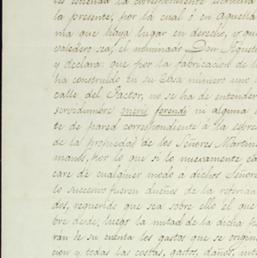 la presente, por la cual ó en aquella
ma que haya lugar en derecho, y que
valedero sea, el nominado Don Agusti
y declara: que por la fabricacion de l
ha construido en su Casa número uno
calle del Pastor, no se ha de entender
servidumbre oneris ferendi ni alguna
te de pared correspondiente á la
de la propiedad de los Señores Martin
mando, por lo que si lo nuevamente
care de cualquier modo á dichos Señore
lo sucesivo fueren dueños de la referida
das, requerido que sea sobre ello el que
bre desde, luego la mitad de la dicha
rán de su cuenta los gastos que se origin
cion y todas las costas, gastos, daños, inte